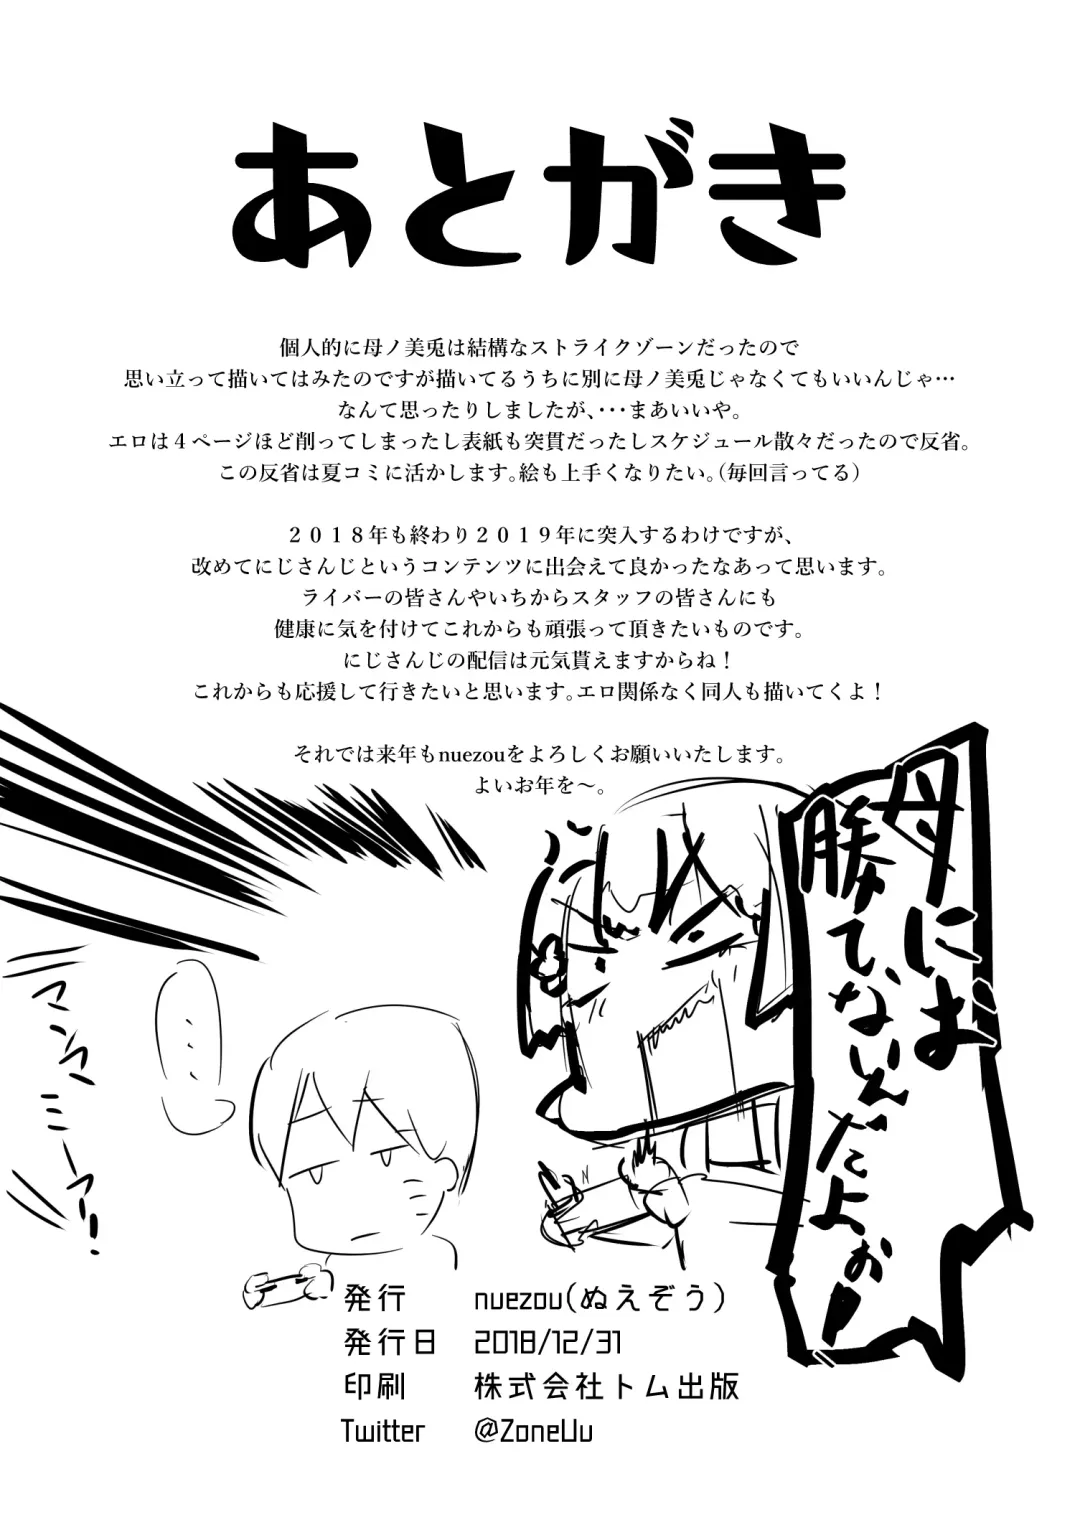 あとがき
個人的に母ノ美兎は結構なストライクゾーンだったので
思い立って描いてはみたのですが描いてるうちに別に母ノ美兎じゃなくてもいいんじゃ…
なんて思ったりしましたが、・・・まあいいや。
エロは４ページほど削ってしまったし表紙も突貫だったしスケジュール散々だったので反省。
この反省は夏コミに活かします。絵も上手くなりたい。（毎回言ってる）
２０１８年も終わり２０１９年に突入するわけですが、
改めてにじさんじというコンテンツに出会えて良かったなあって思います。
ライバーの皆さんやいちからスタッフの皆さんにも
健康に気を付けてこれからも頑張って頂きたいものです。
にじさんじの配信は元気貰えますからね！
これからも応援して行きたいと思います。エロ関係なく同人も描いてくよ！
それでは来年もnuezouをよろしくお願いいたします。
よいお年を～。
母には
勝てないんだよぉ！
・・・
マンマミーアー！
発行 nuezou(ぬえぞう)
発行日 2018/12/31
印刷 株式会社トム出版
Twitter @ZoneUu